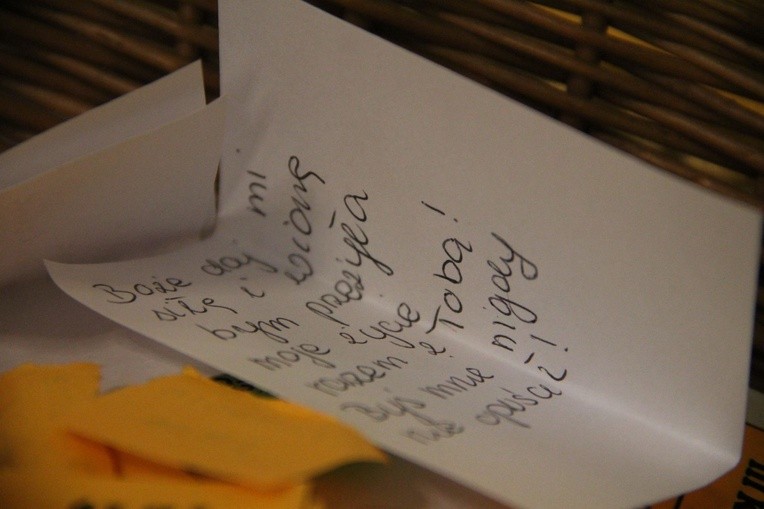 Boże daj mi
siłę i wiarę
bym przeżyła
moje życie
razem z Tobą!
Byś mnie nigdy
nie opuścił!